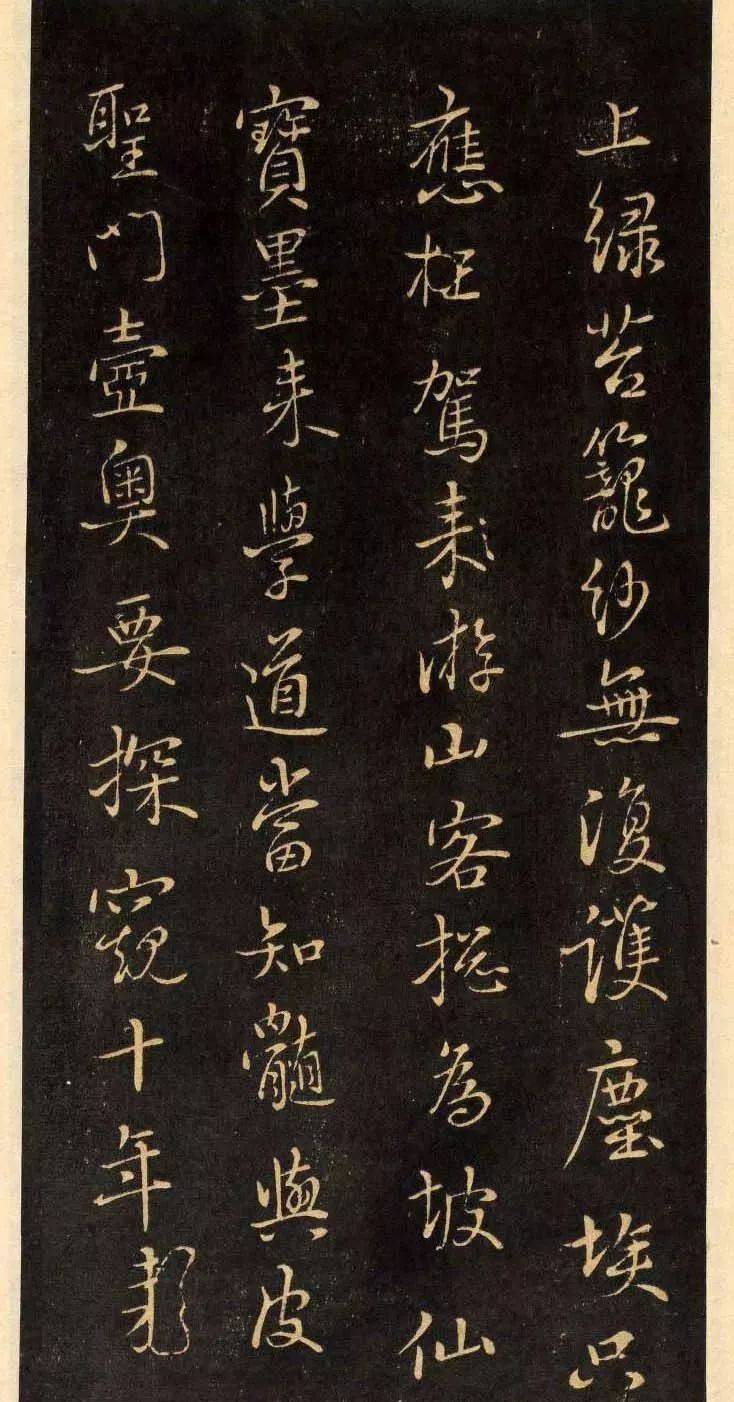 上綠苔籠紗無復護塵埃只
應枉駕游山客摠為坡仙
寶墨来學道當知髓與皮
聖門壼奧要探窺十年